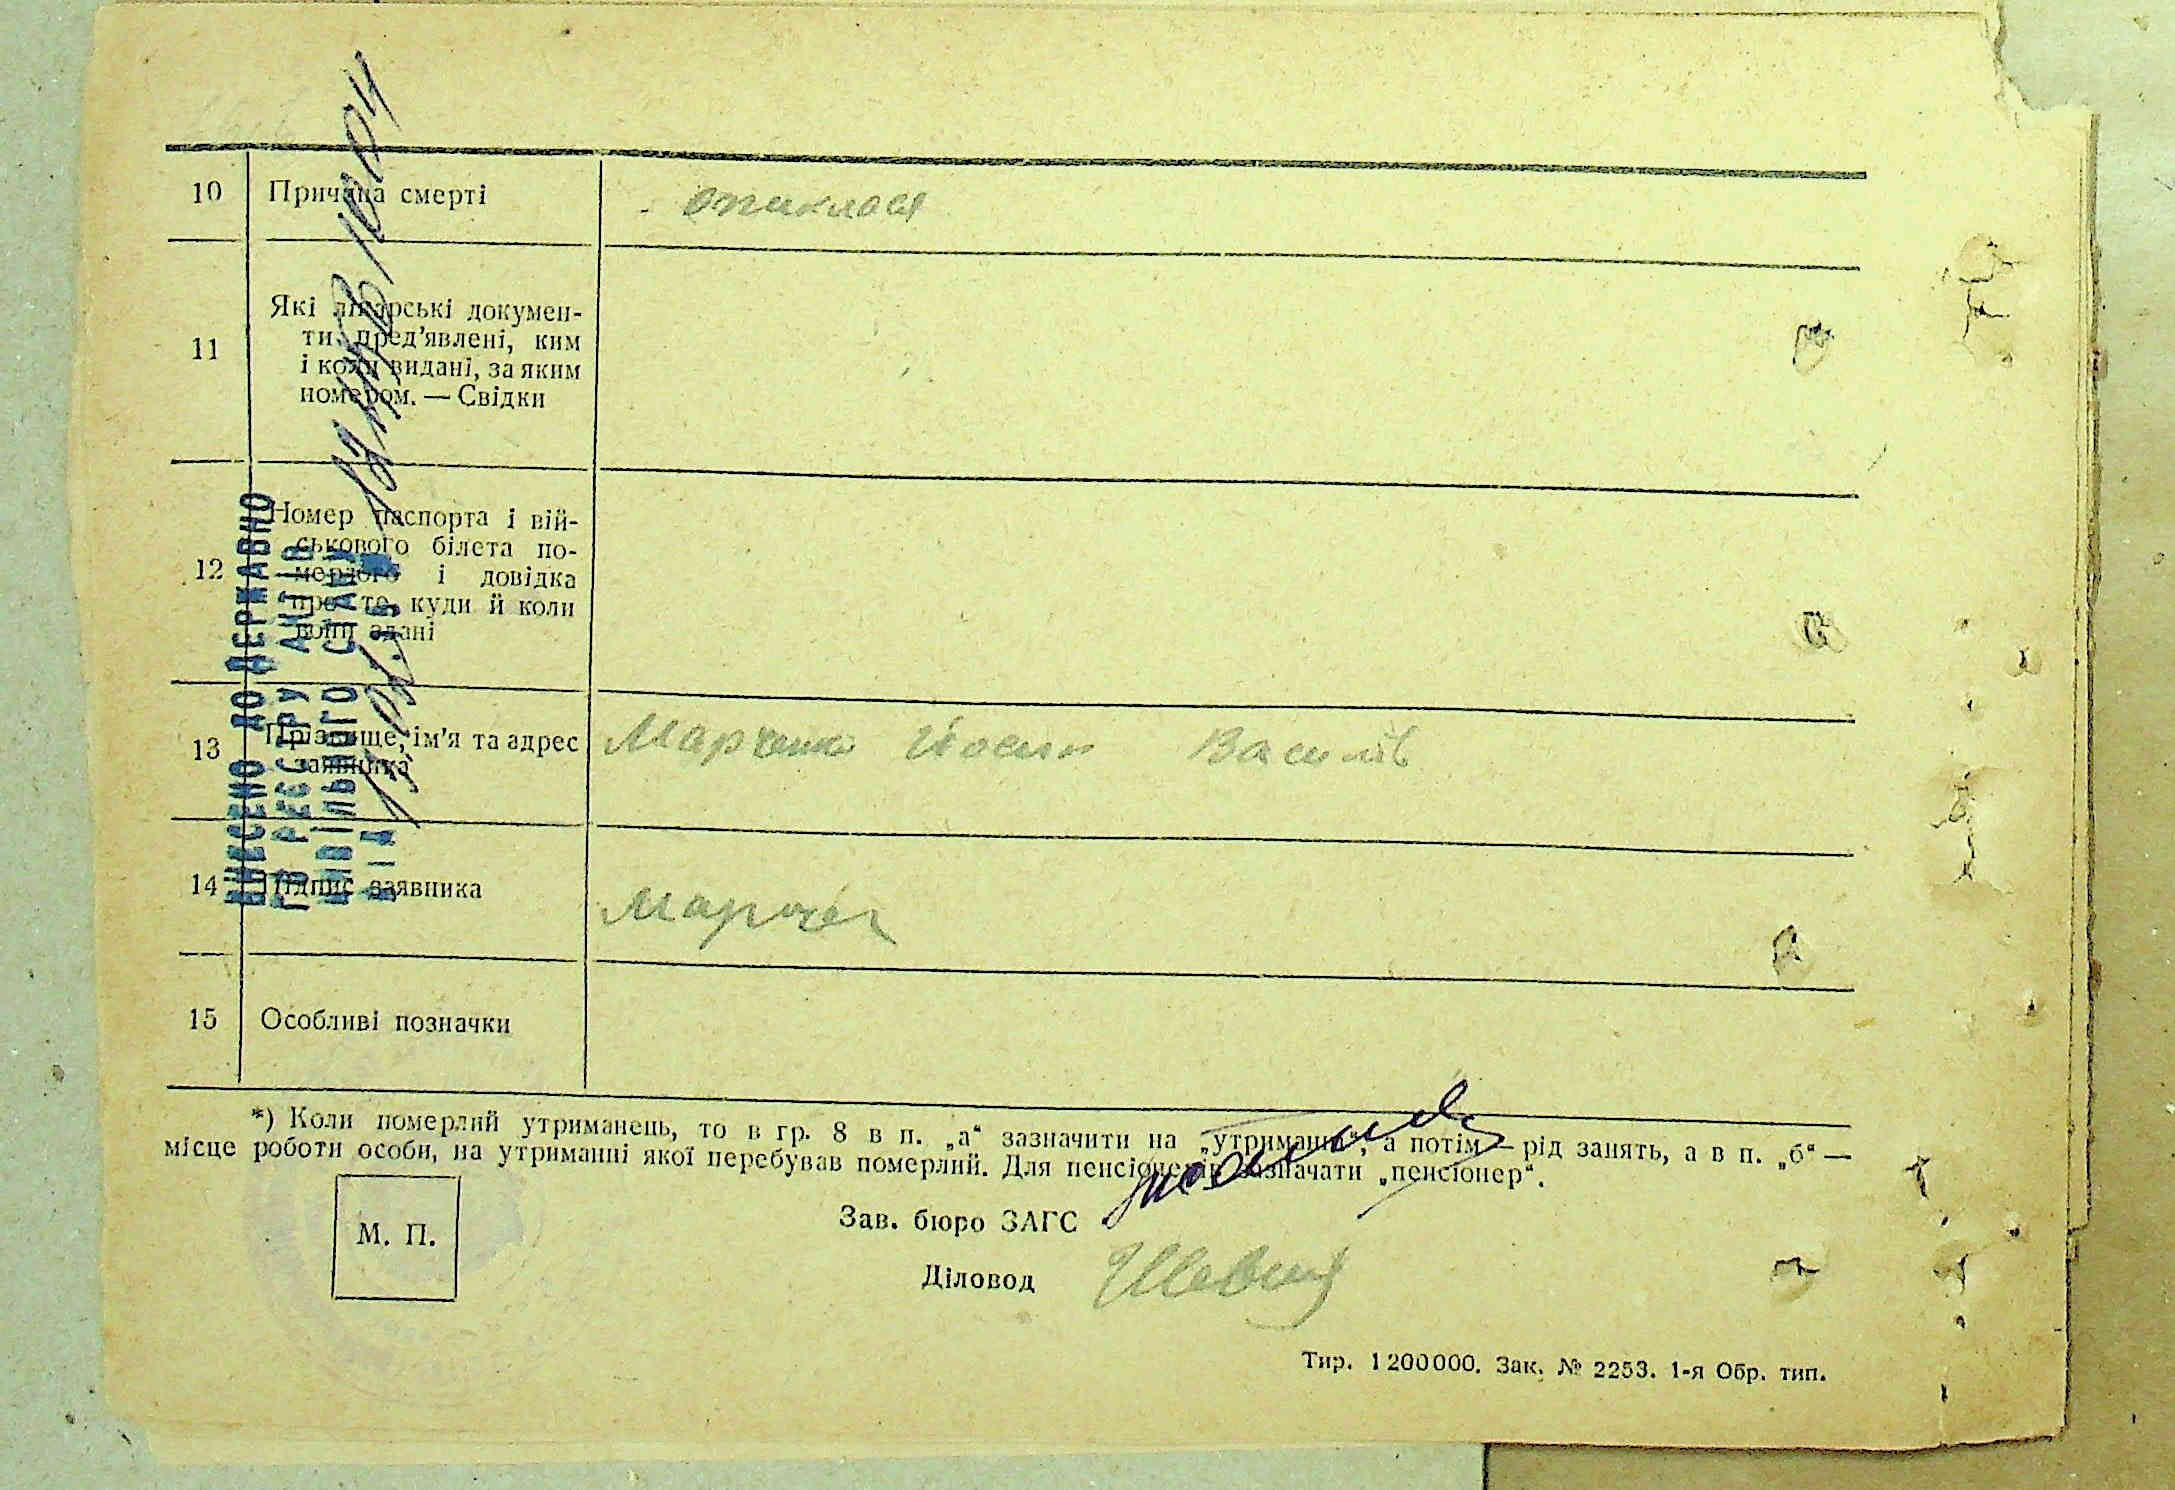 10 Причина смерті опіклася
11 Які лікарські докумен-
ти пред'явлені, ким
і коли видані, за яким
номером. — Свідки
12 Номер паспорта і вій-
ськового білета по-
мерлого і довідка
про те, куди й коли
вони здані
13 Прізвище, ім'я та адрес Марченко Йосип Василів
заявника
14 Підпис заявника Марчен
15 Особливі позначки
ВНЕСЕНО ДО ДЕРЖАВНО
ГО РЕЄСТРУ АКТІВ
ЦИВІЛЬНОГО СТАНУ
*) Коли померлий утриманець, то в гр. 8 в п. „а“ зазначити на „утриманні“, а потім — рід занять, а в п. „б“ —
місце роботи особи, на утриманні якої перебував померлий. Для пенсіонерів зазначати „пенсіонер“.
М. П.
Зав. бюро ЗАГС
Діловод
Тир. 1200000. Зак. № 2253. 1-я Обр. тип.